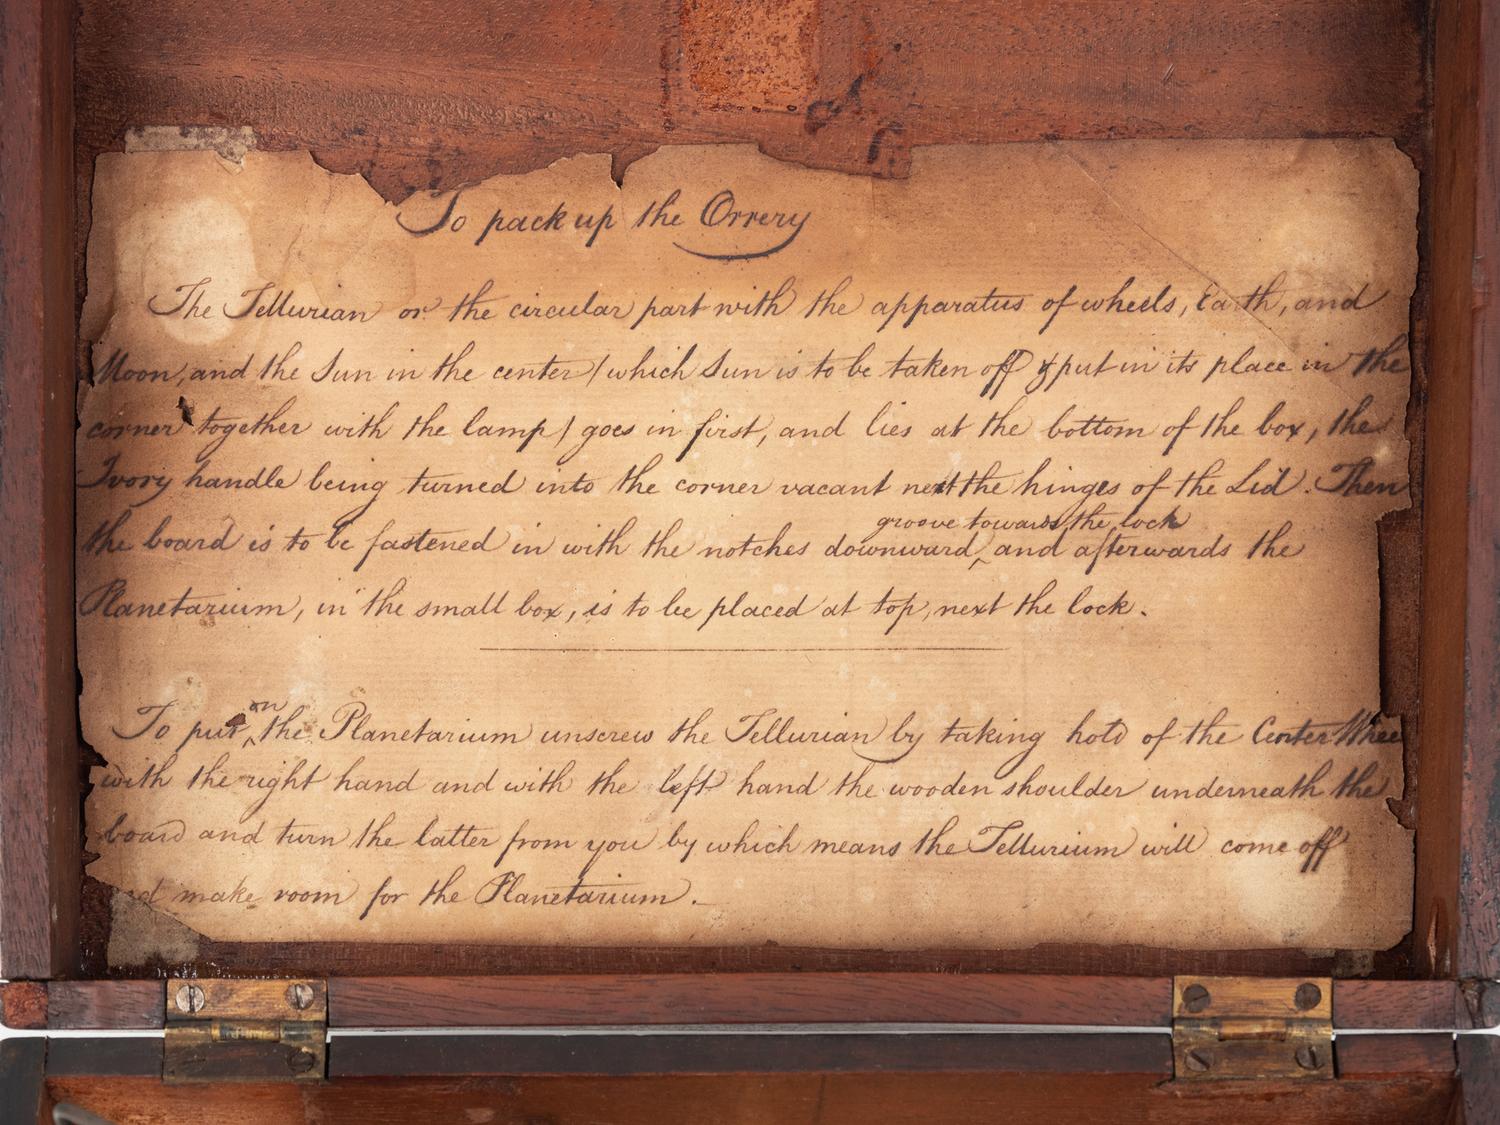 To pack up the Orrery
The Tellurian or the circular part with the apparatus of wheels, Earth, and
Moon, and the Sun in the center / which Sun is to be taken off & put in its place in the
corner together with the lamp / goes in first, and lies at the bottom of the box, the
Ivory handle being turned into the corner vacant next the hinges of the Lid. Then
groove towards the lock
the board is to be fastened in with the notches downward ‸ and afterwards the
Planetarium, in the small box, is to be placed at top, next the lock.
on
To put ‸ the Planetarium unscrew the Tellurian by taking hold of the Center Whee
with the right hand and with the left hand the wooden shoulder underneath the
board and turn the latter from you by which means the Tellurium will come off
make room for the Planetarium.